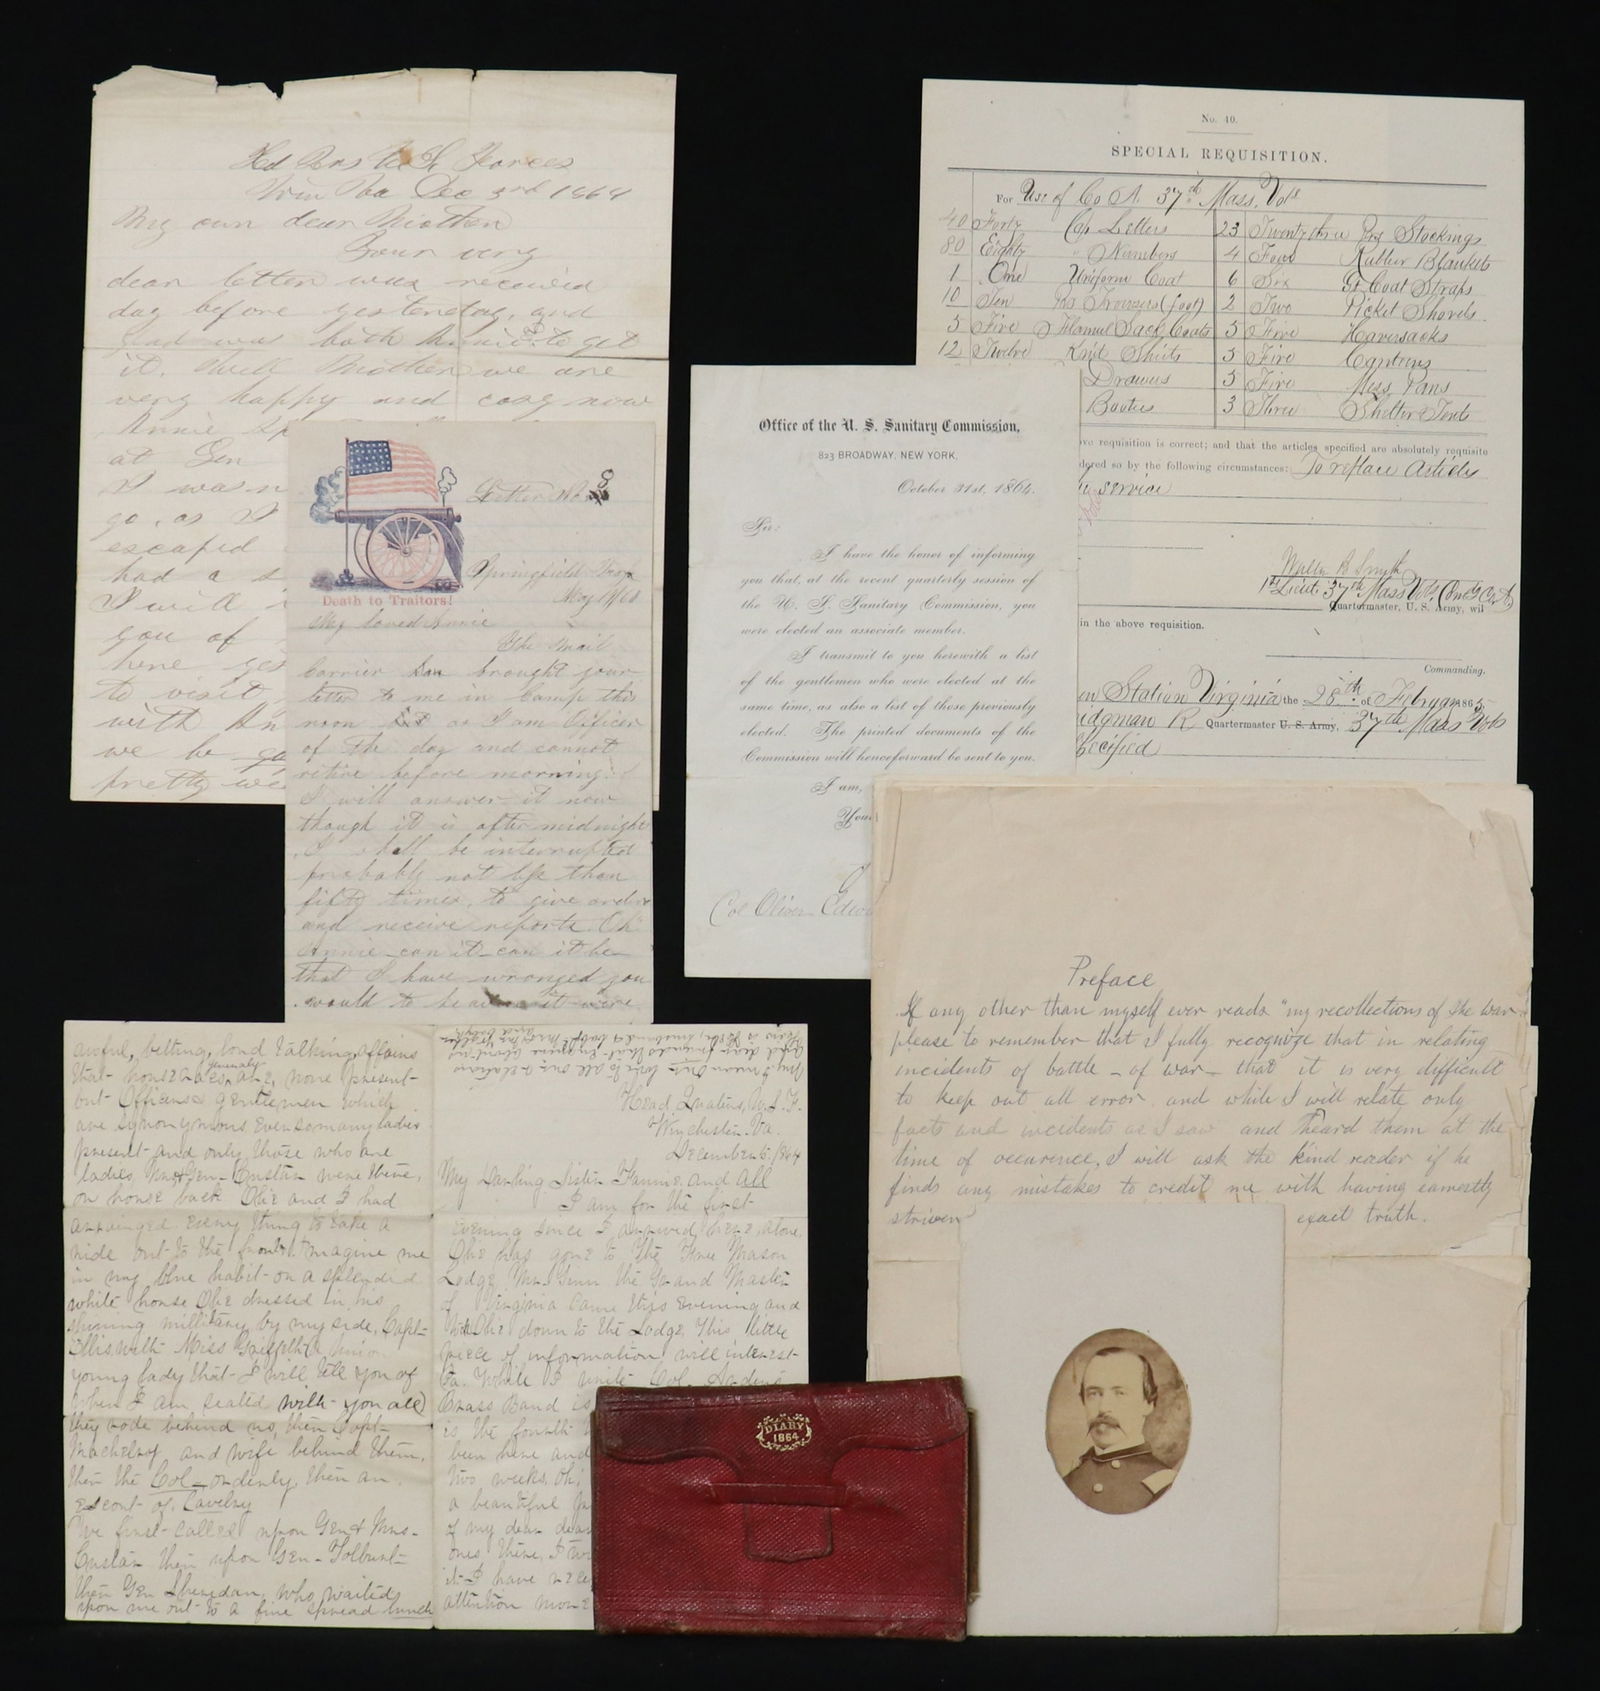 Hd Qrs U. S. Forces
Win Va Dec 3rd 1864
My own dear Mother
Your very
dear letter was received
day before yesterday, and
glad was both to get
it. Mother we are
very happy and cosy now
Annie
at Gen
I was
go, as I
escaped
had a
I will
you of
here yes
to visit
with An
we be
pretty
Letter No. 8
Springfield
May
Death to Traitors!
My loved Annie
The mail
carrier has brought your
letter to me in Camp this
noon as I am Officer
of the day and cannot
retire before morning.
I will answer it now
though it is after midnight
I shall be interrupted
probably not less than
fifty times, to give orders
and receive reports. Oh
Annie can it can it be
that I have wronged you
would to heaven it were
No. 40.
SPECIAL REQUISITION.
For Use of Co A. 37th Mass. Vols
40 Forty Cap Letters 23 Twenty three Prs Stockings
80 Eighty " Numbers 4 Four Rubber Blankets
1 One Uniform Coat 6 Six Gt Coat Straps
10 Ten Prs Trowsers (foot) 2 Two Picket Shovels
5 Five Flannel Sack Coats 5 Five Haversacks
12 Twelve Knit Shirts 5 Five Canteens
Drawers 5 Five Mess Pans
Bootees 3 Three Shelter Tents
ve requisition is correct; and that the articles specified are absolutely requisite
dered so by the following circumstances: To replace Articles
service
Smith
1st Lieut. 37th Mass Vols, Comdg Co. A,
Quartermaster, U. S. Army, wil
in the above requisition.
Commanding.
Station Virginia the 28th of February 1865
idgman R Quartermaster U. S. Army, 37th Mass Vols
pecified
Office of the U. S. Sanitary Commission,
823 BROADWAY, NEW YORK,
October 31st, 1864.
Sir:
I have the honor of informing
you that, at the recent quarterly session of
the U. S. Sanitary Commission, you
were elected an associate member.
I transmit to you herewith a list
of the gentlemen who were elected at the
same time, as also a list of those previously
elected. The printed documents of the
Commission will henceforward be sent to you.
I am,
You
Col Oliver Edw
Preface
If any other than myself ever reads "my recollections of the war
please to remember that I fully recognize that in relating
incidents of battle - of war - that it is very difficult
to keep out all error. and while I will relate only
facts and incidents as I saw and heard them at the
time of occurence, I will ask the kind reader if he
finds any mistakes to credit me with having earnestly
striven exact truth.
awful, betting, loud talking affairs
that horse races are, none present
but Officers & gentlemen which
are synonymous even so many ladies
present and only those who are
ladies, Mrs Gen Custar were there,
on horse back Obe and I had
arrainged every thing to take a
ride out to the front. Imagine me
in my blue habit on a splendid
white horse Obe dressed in his
shining millitary by my side, Capt
Ellis with Miss Griffith (A union
young lady that I will tell you of
when I am seated with you all)
they rode behind us, then Capt
and wife behind them,
then the Col orderly, then an
escort of Cavelry
We first called upon Gen & Mrs
Custar then upon Gen Tolbunt
then Gen Sheredan, who waited
upon me out to a fine spread lunch
Head Quaters, U. S. F.
Winchester. Va.
December 6. 1864
My Darling Sister Fannie and all
I am for the first
evening since I arrived here, alone,
Obe has gone to the Free Mason
Lodge, Mr. Ginn the Grand Master
of Virginia came this evening and
took Obe down to the Lodge, This little
piece of information will interest
Pa. While I write Col.
Brass Band is
is the fourth
been here and
two weeks, Oh,
a beautiful
of my dear dear
ones there, I
it I have
attention more
DIARY
1864